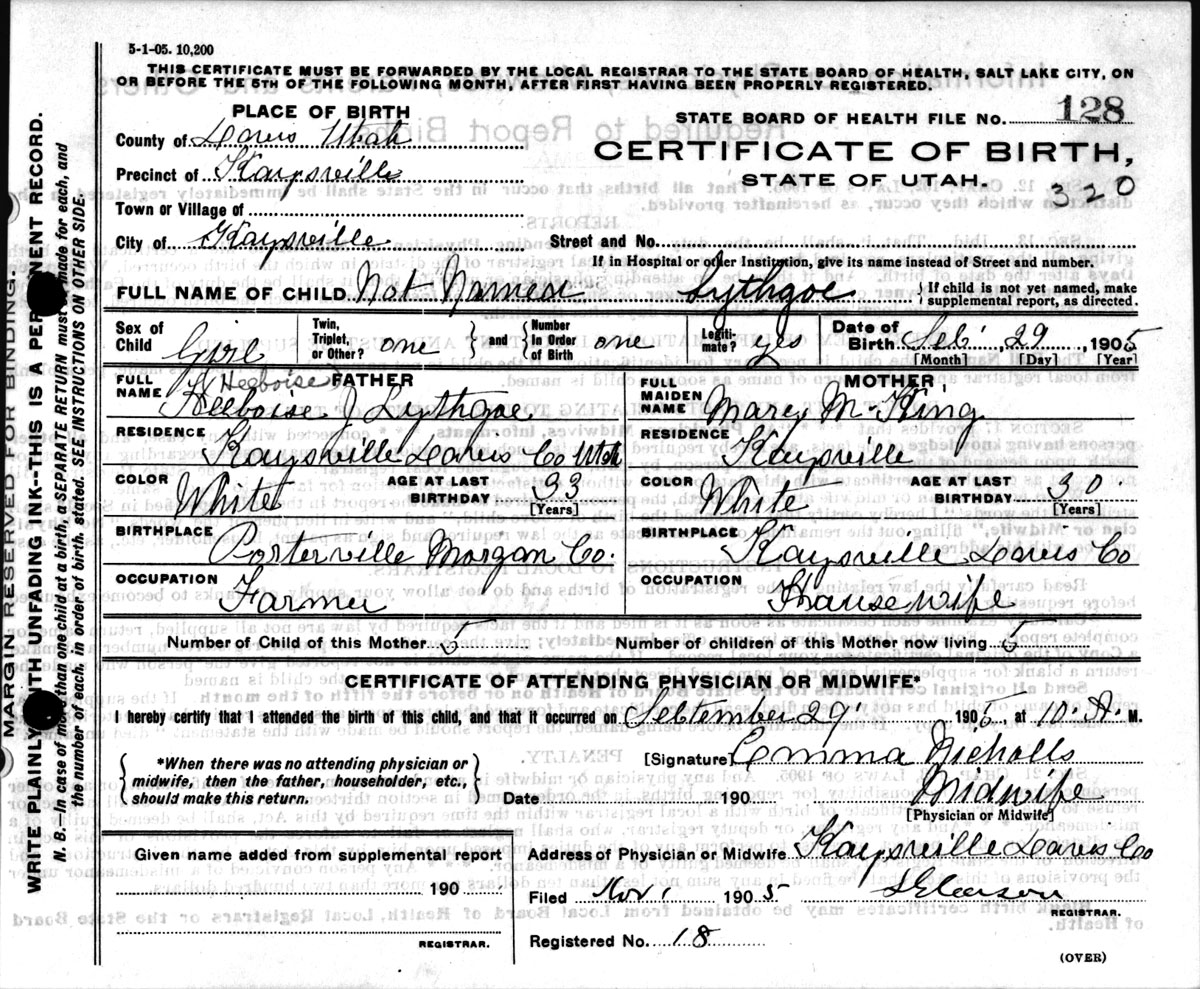 5-1-05. 10,200
THIS CERTIFICATE MUST BE FORWARDED BY THE LOCAL REGISTRAR TO THE STATE BOARD OF HEALTH, SALT LAKE CITY, ON
OR BEFORE THE 5TH OF THE FOLLOWING MONTH, AFTER FIRST HAVING BEEN PROPERLY REGISTERED.
PLACE OF BIRTH
STATE BOARD OF HEALTH FILE NO. 128
County of Davis Utah
CERTIFICATE OF BIRTH,
Precinct of Kaysville
STATE OF UTAH.
320
Town or Village of
City of Kaysville Street and No.
If in Hospital or other Institution, give its name instead of Street and number.
FULL NAME OF CHILD Not Named Lythgoe { If child is not yet named, make supplemental report, as directed.
Sex of Child Girl Twin, Triplet, or Other? one } and { Number In Order of Birth one Legitimate? yes Date of Birth Seb 29, 1905
[Month] [Day] [Year]
FATHER
FULL NAME Heeboise J Lythgoe
Heeboise
MOTHER
FULL MAIDEN NAME Mary M King
RESIDENCE Kaysville Davis Co Utah
RESIDENCE Kaysville
COLOR White AGE AT LAST BIRTHDAY 33 [Years]
COLOR White AGE AT LAST BIRTHDAY 30 [Years]
BIRTHPLACE Porterville Morgan Co.
BIRTHPLACE Kaysville Davis Co
OCCUPATION Farmer
OCCUPATION Hausewife
Number of Child of this Mother 5 Number of children of this Mother now living 5
CERTIFICATE OF ATTENDING PHYSICIAN OR MIDWIFE*
I hereby certify that I attended the birth of this child, and that it occurred on Seltember 29 1905, at 10. A. M.
{ *When there was no attending physician or midwife, then the father, householder, etc., should make this return. }
[Signature] Emma Nicholls
Date 190 Midwife
[Physician or Midwife]
Given name added from supplemental report
190
REGISTRAR.
Address of Physician or Midwife Kaysville Davis Co
Filed Nov 1 1905
REGISTRAR.
Registered No. 18
(OVER)
MARGIN RESERVED FOR BINDING.
WRITE PLAINLY WITH UNFADING INK--THIS IS A PERMANENT RECORD.
N. B.—In case of more than one child at a birth, a SEPARATE RETURN must be made for each, and
the number of each, in order of birth, stated. SEE INSTRUCTIONS ON OTHER SIDE.